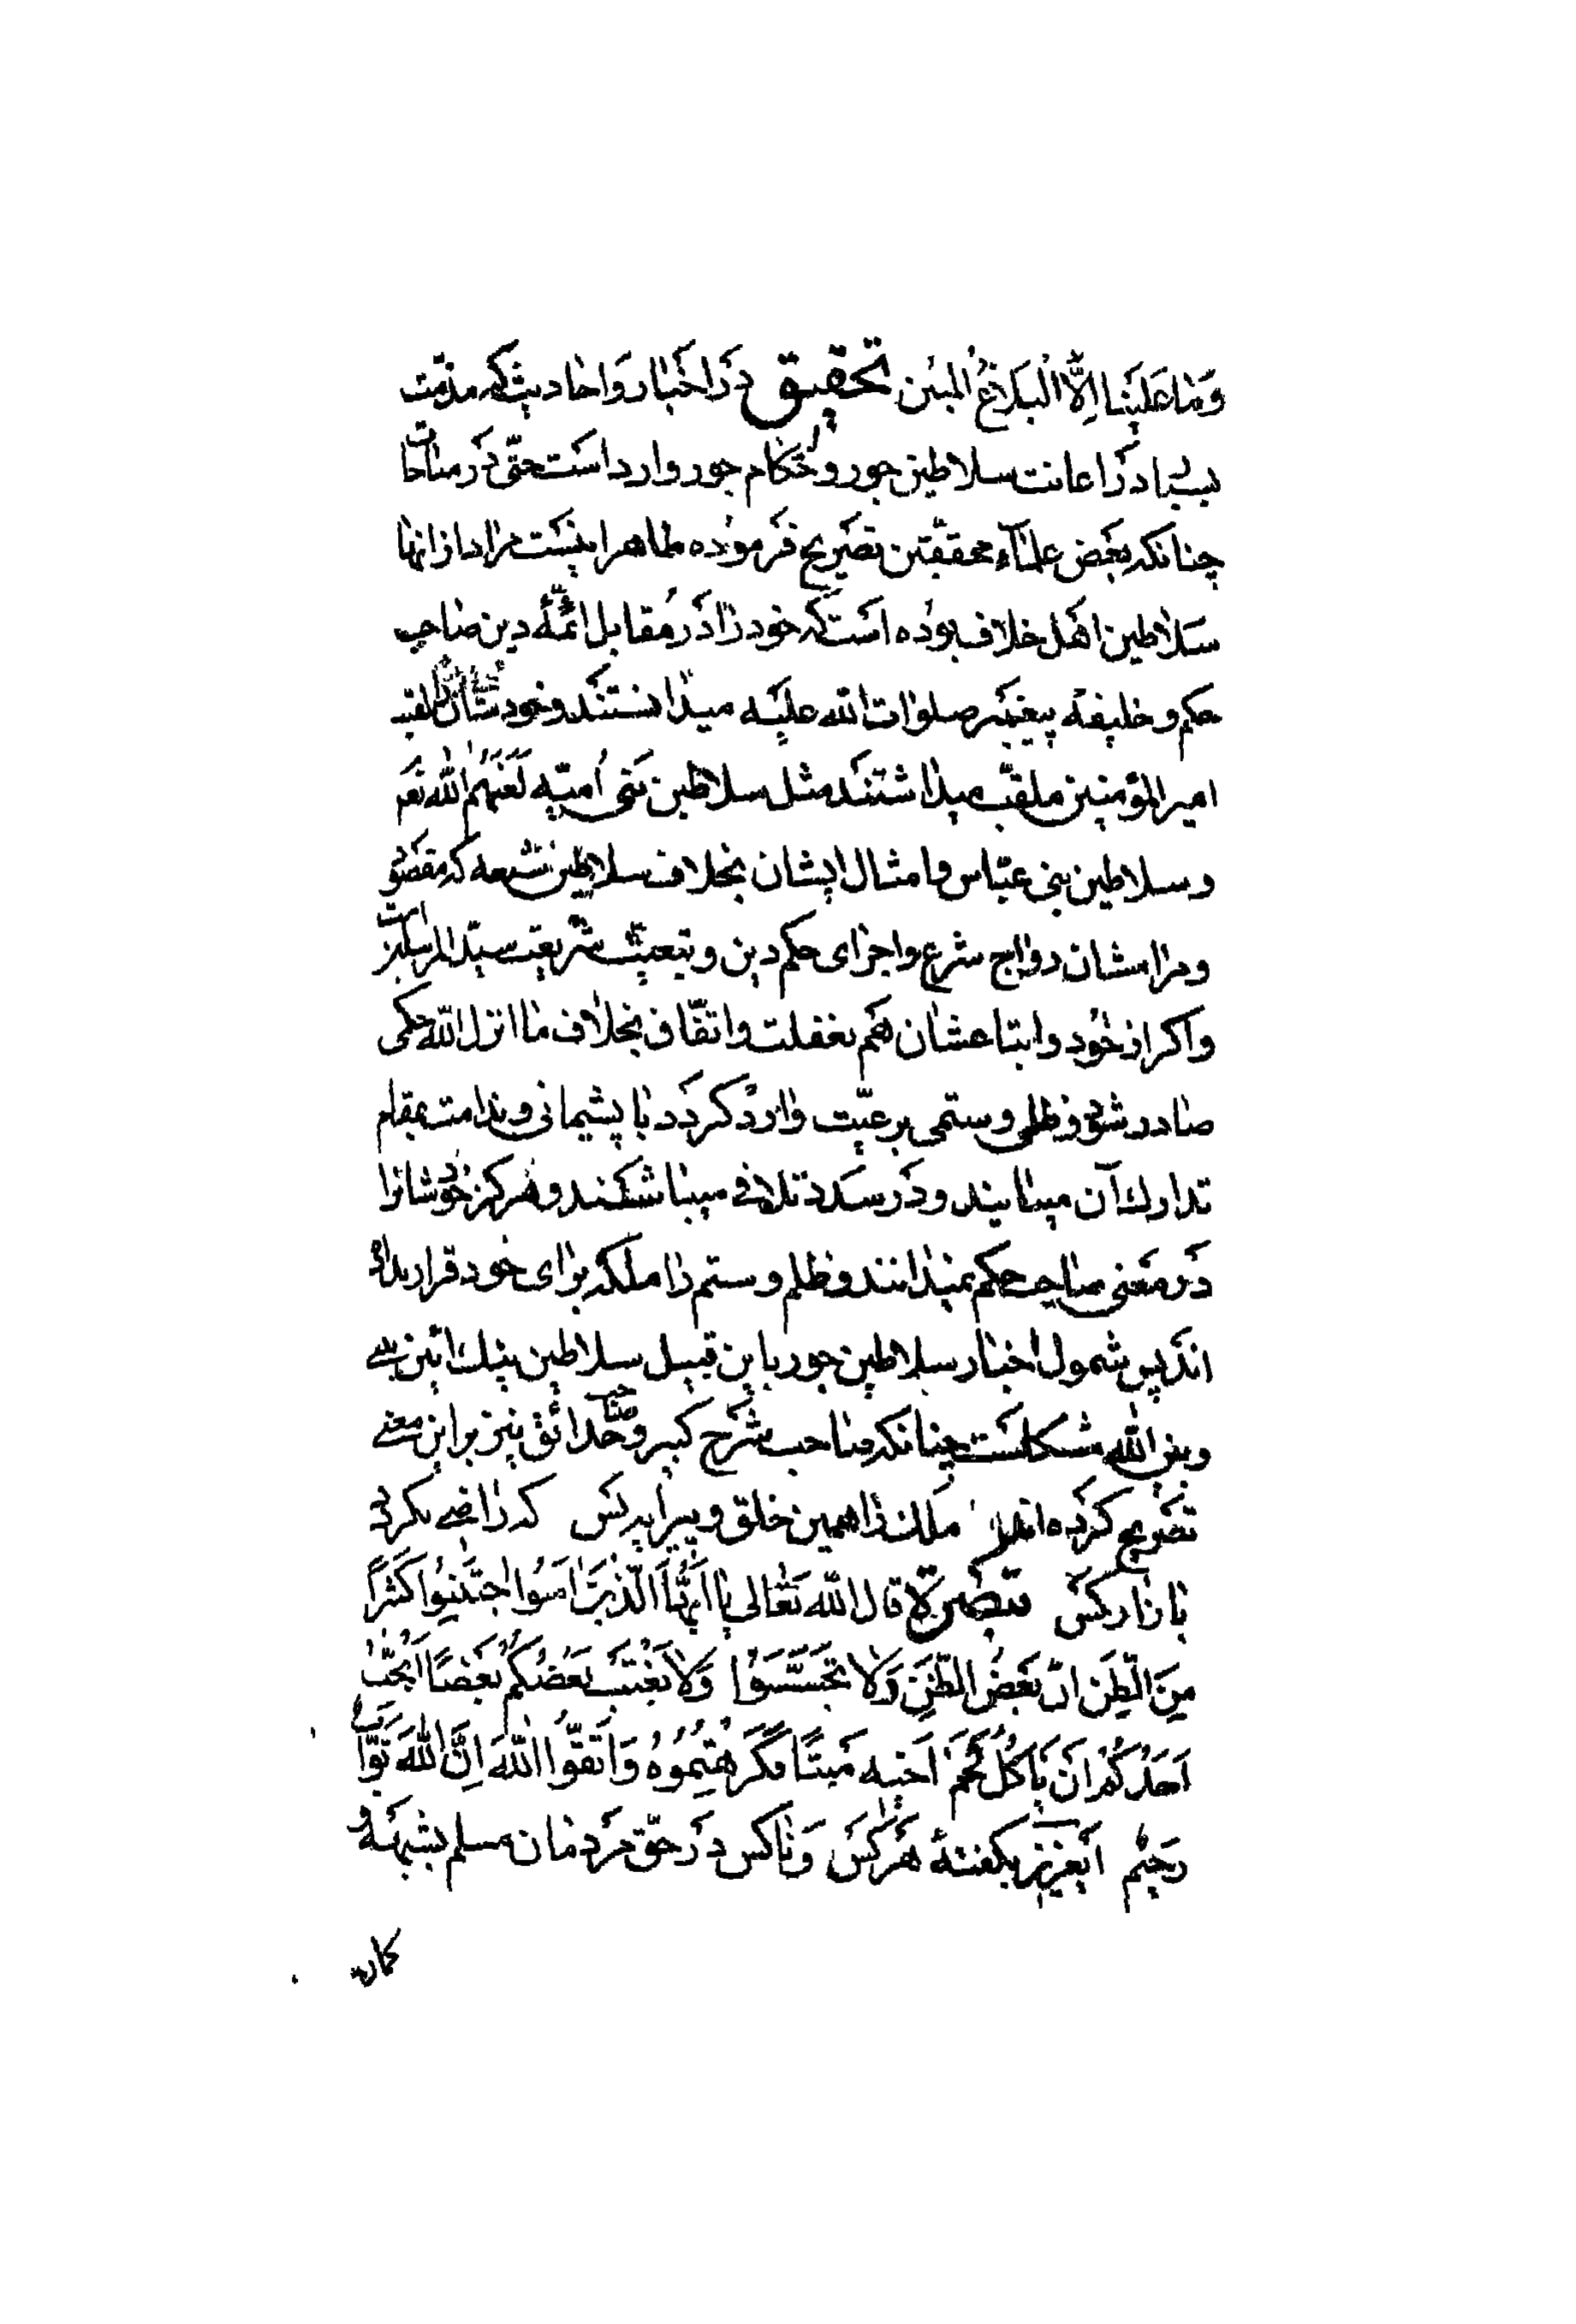 وَمٰا عَلَیْنٰا اِلَّا الْبَلاٰغُ الْمُبین تحقیق دَر اخبٰار وَاحٰادیث که مذمّت
بسیٰار در اعانت سلاطین جور و حُکام جور وارد است حتّی دَر مبٰاحات
چنانکه بعَض علمٰآء محققّین تصَریح فَرموده ظاهرا نیست مرٰاد از انهٰا
سَلاٰطین اهَل خلاف بوُده است که خود رٰا دَر مُقابل ائمّهٔ دین صٰاحب
حکم و خلیفهٔ پیغمبَر صلوٰات الله علیه میدٰانستند و خودشان بلقب
امیرالمؤمنین ملقّب میدٰاشتند مثل سلاٰطین بَنی اُمیّه لَعَنَهُمُ اللهُ تعَ
و سلاطین بنی عبّاس و امثال ایشان بخلاف سلاطین شیعه که مقصُود
و مرامشان روٰاج شرع و اجرٰای حکم دین و تبعیّت شریعت سیّد المرسلین است
و اکر از خُود و اتباعشٰان هَم بغفلت و اتفّاق بخلٰاف مٰا انزل الله حکمی
صٰادر شود و ظلمی و ستمی برعیّت وٰارد کردَد بٰا پشیمانی و ندٰامت بمقام
تدارك آن میٰایند و دَر صَدد تلافی میبٰاشند و هَرکز خوُدشانرا
دَر معَنی صٰاحب حکم نمیدٰانند و ظلم و ستم رٰا ملکه برٰای خود قرار نداده
اندَ پس شمول اخبٰار سلاطین جور باین قبیل سلاطین نیك ائین بینی
و بین الله مشکلست چنانکه صٰاحب شَرح کبیر و صٰاحب حَدائق نیز بر این معنی
تصَریح کرده اند ملك رٰا همین خلق و پیرایه بَس که رٰاضی نکردد
بٰازار کَس تبصرَة قال الله تعَٰالی یٰا اَیُّهَا الَّذینَ اٰمَنُوا اجتَنِبُوا کَثیراً
مِنَ الظَنّ انّ بَعَضَ الظَّنِّ وَلاٰ تَجَسَّسَوُا وَلاٰ یَغْتَبْ بَعَضُکُمْ بَعَضًا اَیُحِبُّ
اَحَدُکُمْ اَنْ یَاکُلَ لَحْمَ اَخیهِ مَیتًا فکَرِهْتُمُوهُ وَاتَّقُوا اللهَ اِنَّ اللهَ تَوّٰاب
رَحیمٌ ایعَزیز بکفتهٔ هَرکَسَ وَنٰاکس دَر حَقّ مَردمٰان مسلم بشبهَهٔ و
کمان